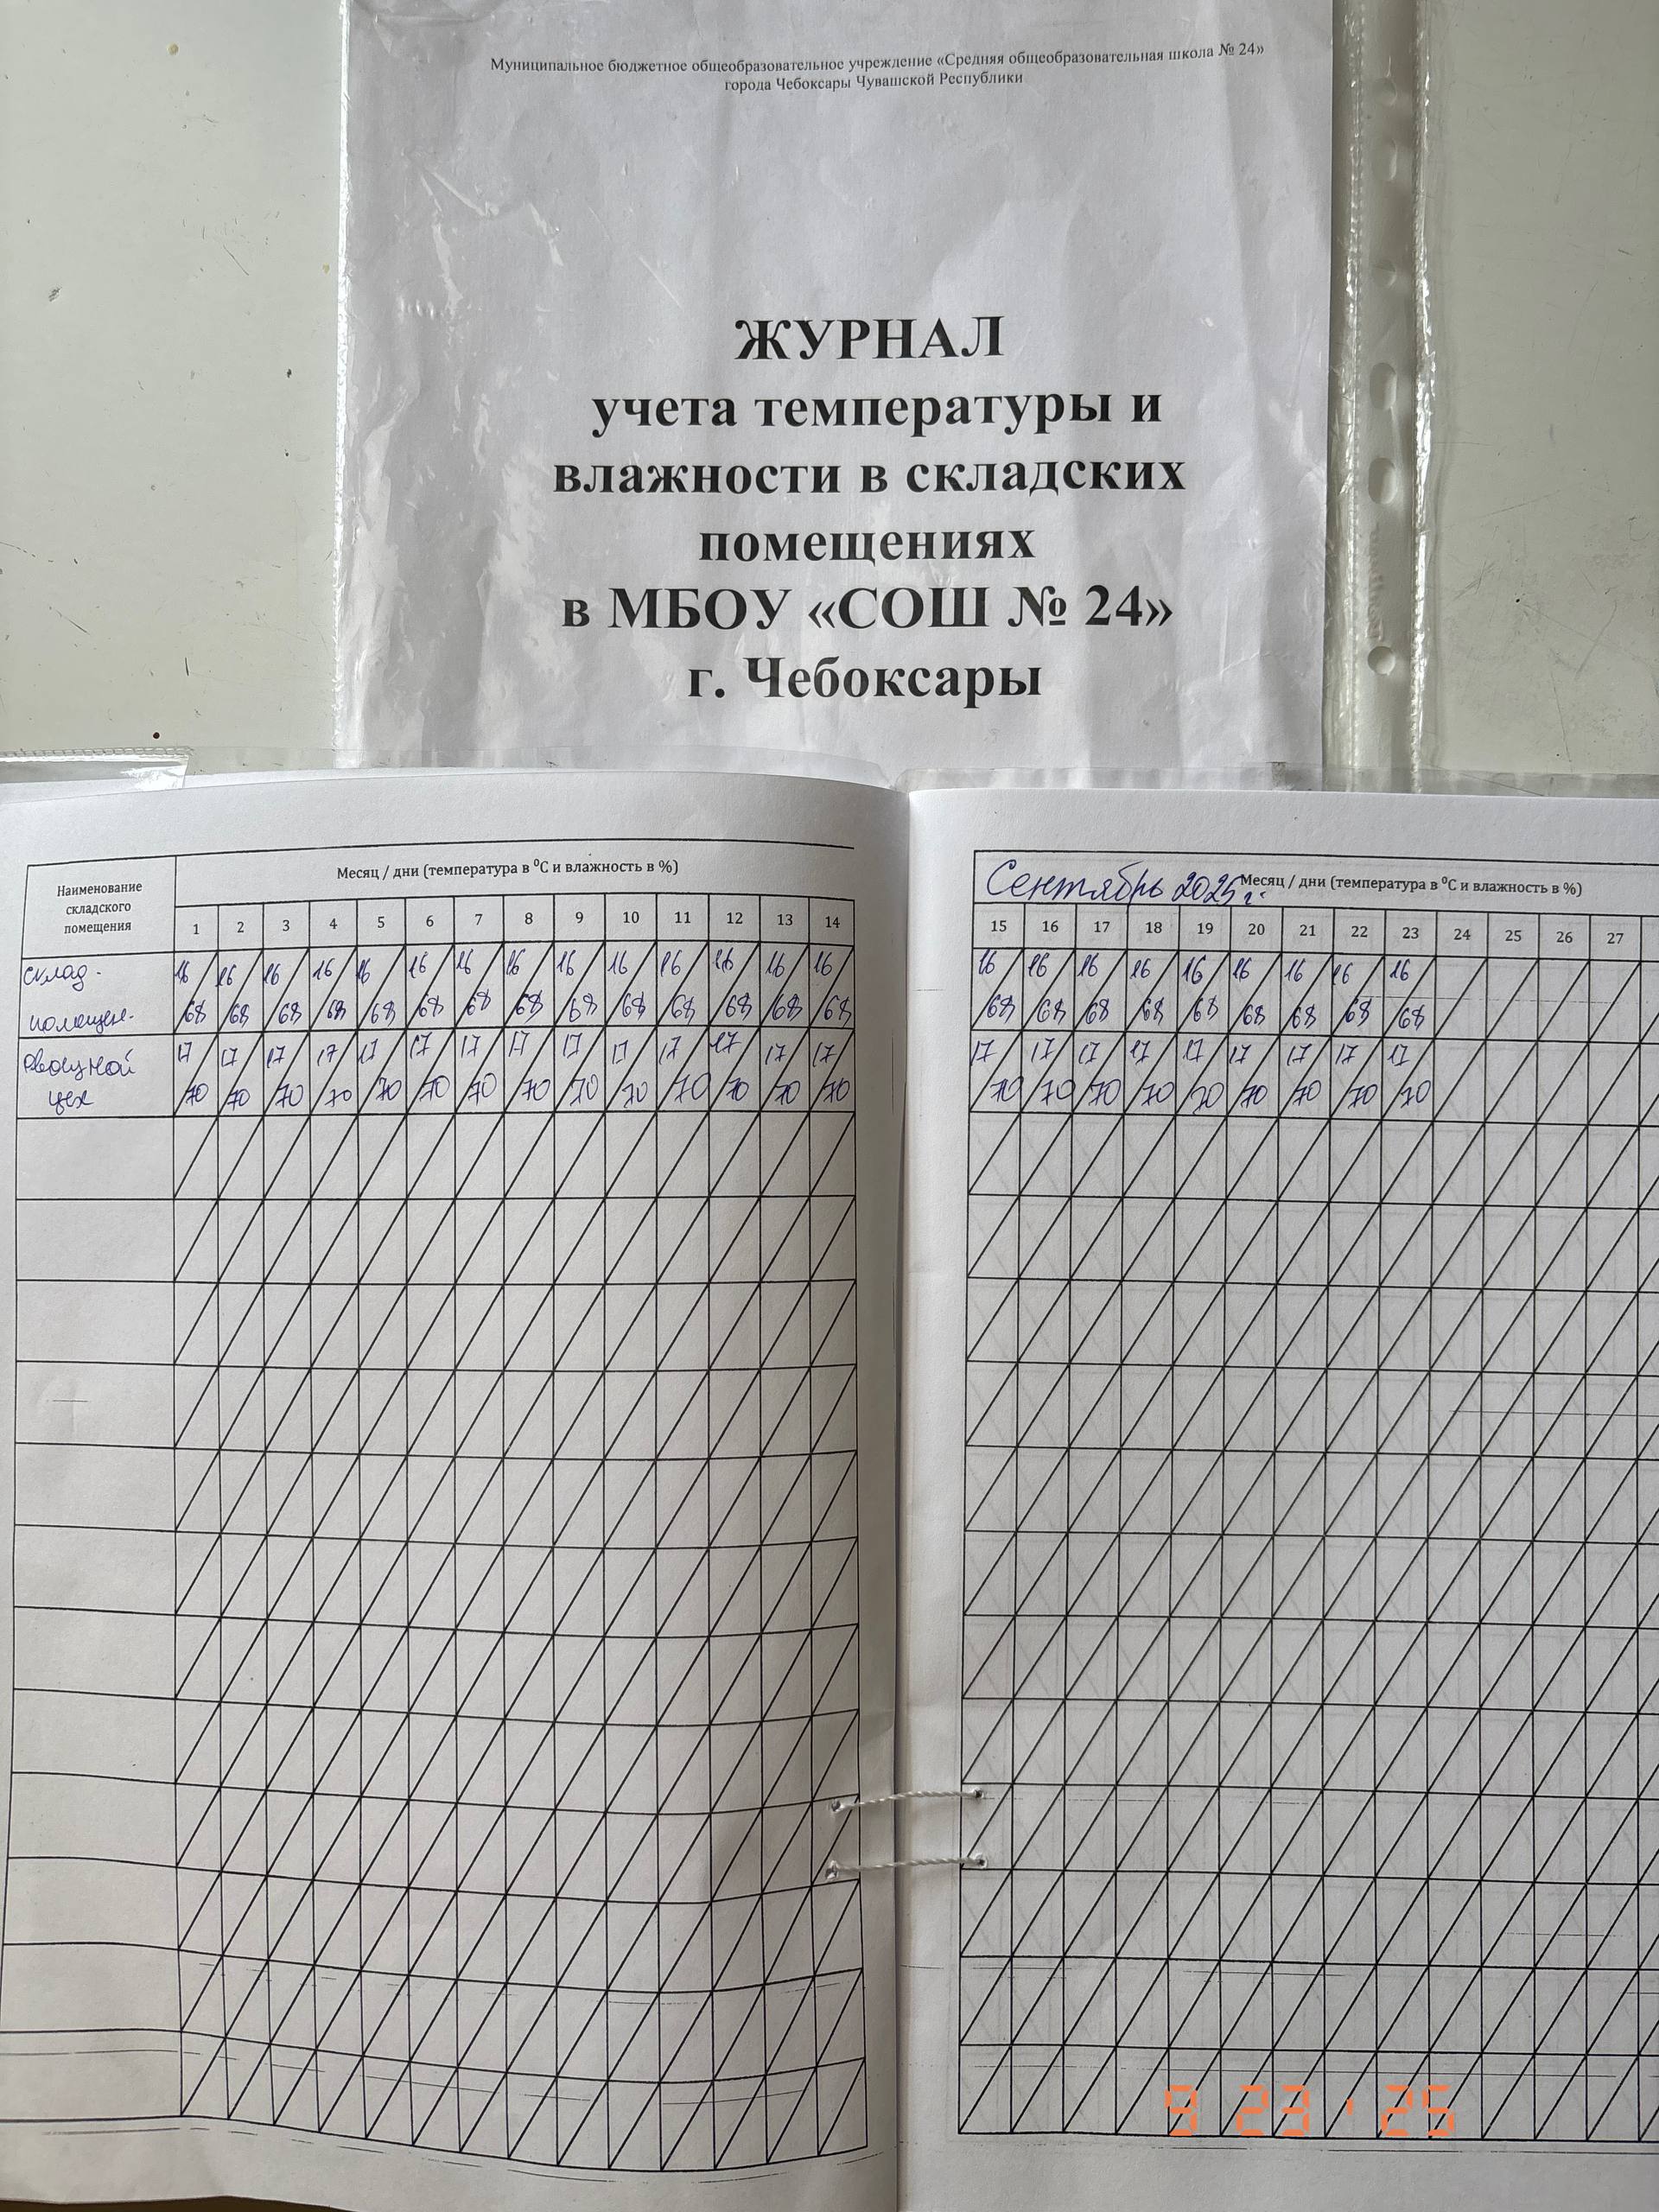 Муниципальное бюджетное общеобразовательное учреждение «Средняя общеобразовательная школа № 24»
города Чебоксары Чувашской Республики
ЖУРНАЛ
учета температуры и
влажности в складских
помещениях
в МБОУ «СОШ № 24»
г. Чебоксары
Наименование
складского
помещения
Месяц / дни (температура в ⁰С и влажность в %)
1 2 3 4 5 6 7 8 9 10 11 12 13 14
склад.
16 16 16 16 16 16 16 16 16 16 16 16 16 16
помещен.
68 68 68 68 68 68 68 68 68 68 68 68 68 68
овощной
17 17 17 17 17 17 17 17 17 17 17 17 17 17
цех
70 70 70 70 70 70 70 70 70 70 70 70 70 70
Сентябрь 2025 г. Месяц / дни (температура в ⁰С и влажность в %)
15 16 17 18 19 20 21 22 23 24 25 26 27
16 16 16 16 16 16 16 16 16
68 68 68 68 68 68 68 68 68
17 17 17 17 17 17 17 17 17
70 70 70 70 70 70 70 70 70
9 23 ' 25